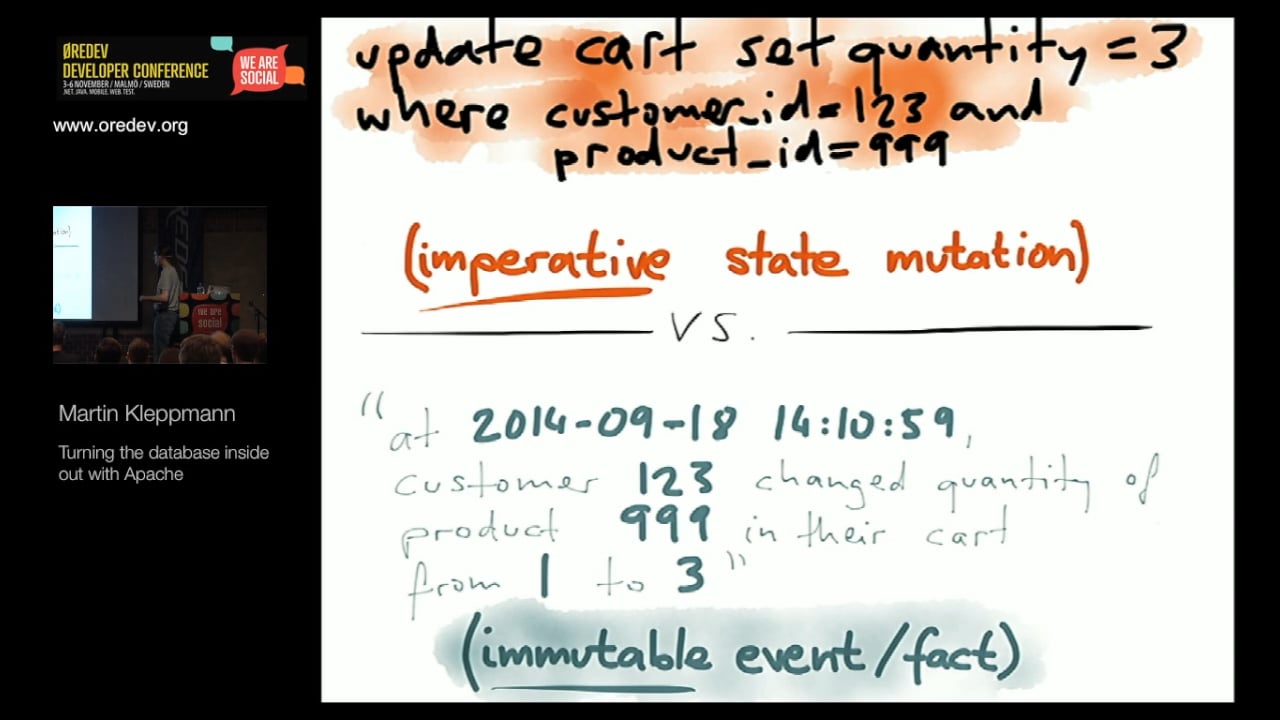 ØREDEV
DEVELOPER CONFERENCE
3-6 NOVEMBER / MALMÖ / SWEDEN
.NET. JAVA. MOBILE. WEB. TEST.
WE ARE
SOCIAL
www.oredev.org
we are
social
Martin Kleppmann
Turning the database inside
out with Apache
update cart set quantity = 3
where customer_id = 123 and
product_id = 999
(imperative state mutation)
vs.
"at 2014-09-18 14:10:59,
customer 123 changed quantity of
product 999 in their cart
from 1 to 3"
(immutable event/fact)